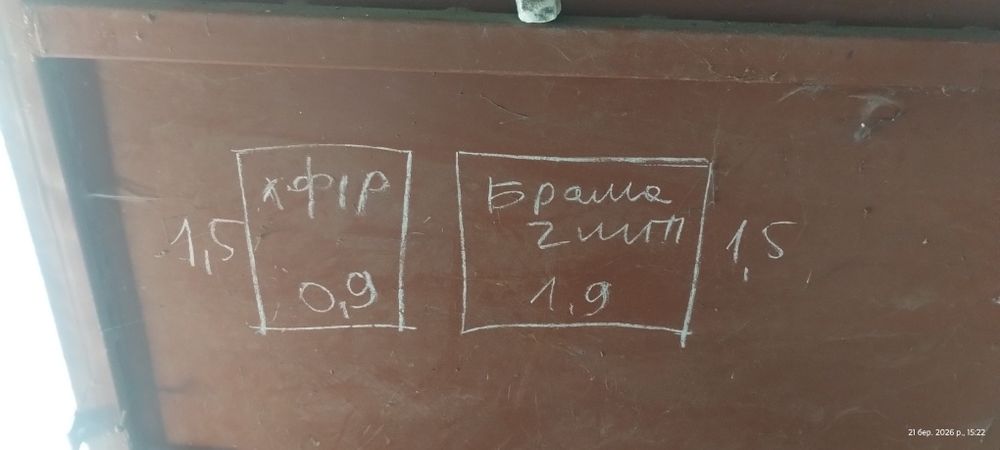 хфір
1,5
0,9
Брама
2 шт
1,9
1,5
21 бер. 2026 р., 15:22